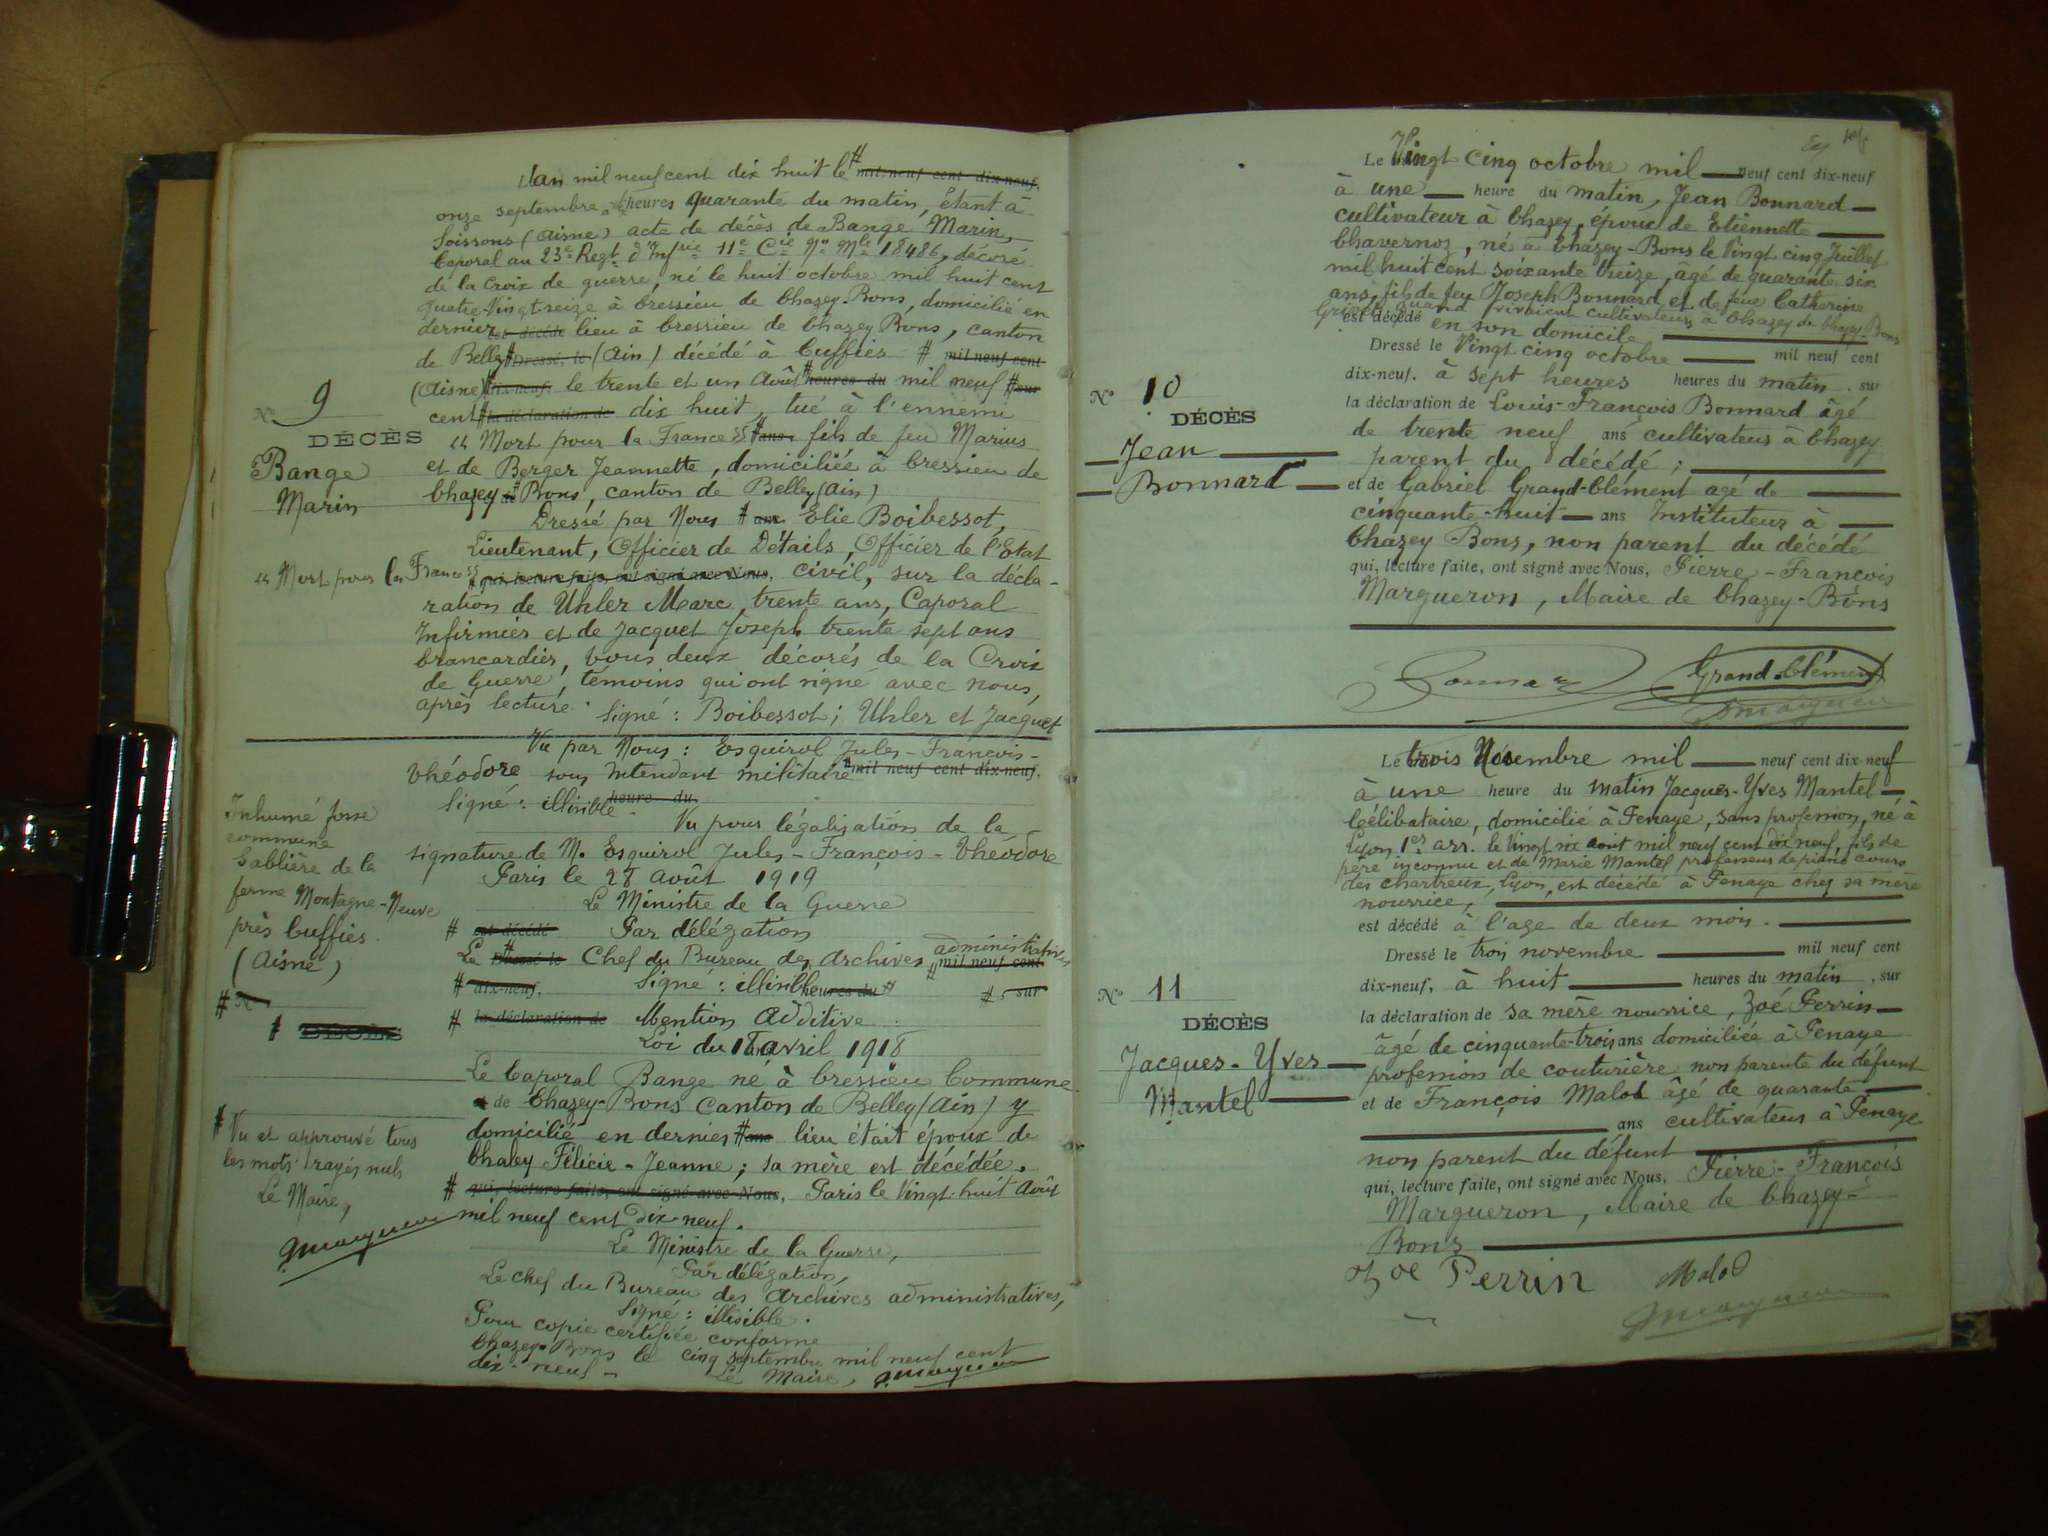 L'an mil neuf cent dix huit le # mil neuf cent dix-neuf.
onze septembre heures quarante du matin, étant à
Soissons (Aisne) acte de décès de Bange Marin,
Caporal au 23e Regt d'Infrie 11e Cie No Mle 18486, décoré
de la Croix de guerre, né le huit octobre mil huit cent
quatre-Vingt-seize à Cressieu de Chazey-Bons, domicilié en
dernier est décédé lieu à Cressieu de Chazey Bons, canton
de Belley # Dressé, le (Ain) décédé à Cuffies # mil neuf cent
(Aisne) # dix-neuf, le trente et un Août # heures du mil neuf # sur
cent # la déclaration de dix huit, tué à l'ennemi
No 9
DÉCÈS
Bange
Marin
"Mort pour la France" # ans, fils de feu Marius
et de Berger Jeannette, domiciliée à Cressieu de
Chazey # Bons, canton de Belley (Ain)
Dressé par Nous # ans Elie Boibessot,
Lieutenant, Officier de Détails, Officier de l'Etat
"Mort pour la France" # qui, lecture faite, ont signé avec Nous, civil, sur la décla-
ration de Uhler Marc, trente ans, Caporal
Infirmier et de Jacquet Joseph trente sept ans
brancardier, tous deux décorés de la Croix
de Guerre, témoins qui ont signé avec nous,
après lecture. Signé : Boibessot; Uhler et Jacquet
Vu par Nous : Esquirol Jules-François-
Théodore sous Intendant militaire # mil neuf cent dix-neuf.
Signé : illisible heure du
Vu pour légalisation de la
signature de M. Esquirol Jules-François-Théodore
Paris le 28 août 1919
Le Ministre de la Guerre
# est décédé Par délégation
Le # Dressé le Chef du Bureau des Archives administratives # mil neuf cent
# dix-neuf, Signé : illisible heures du # #, sur
# la déclaration de Mention Additive
Loi du 18 avril 1918
Le Caporal Bange né à Cressieu Commune
de Chazey-Bons Canton de Belley (Ain) y
domicilié en dernier # ans lieu était époux de
Chaley Félicie-Jeanne; sa mère est décédée.
# qui, lecture faite, ont signé avec Nous, Paris le Vingt huit Août
mil neuf cent Dix-neuf.
Le Ministre de la Guerre,
Par délégation,
Le Chef du Bureau des Archives administratives,
Signé : illisible.
Pour copie certifiée conforme
Chazey-Bons le cinq septembre mil neuf cent
dix-neuf - Le Maire, Margueron
Inhumé fosse
commune
Sablière de la
ferme Montagne-Neuve
près Cuffies.
(Aisne)
# No
# DÉCÈS
# Vu et approuvé tous
les mots rayés nuls
Le Maire,
Margueron
Le Vingt cinq octobre mil neuf cent dix-neuf
à une heure du matin, Jean Bonnard
cultivateur à Chazey, époux de Etiennette
Chavernoz, né à Chazey-Bons le Vingt cinq Juillet
mil huit cent soixante treize, agé de quarante six
ans, fils de feu Joseph Bonnard et de feue Catherine
quand vivaient cultivateurs à Chazey de Chazey-Bons
est décédé en son domicile
Dressé le Vingt cinq octobre mil neuf cent
dix-neuf. à sept heures heures du matin, sur
la déclaration de Louis-François Bonnard âgé
de trente neuf ans cultivateur à Chazey
parent du décédé;
et de Gabriel Grand-Clément agé de
cinquante-huit ans Instituteur à
Chazey Bons, non parent du décédé
qui, lecture faite, ont signé avec Nous, Pierre-François
Margueron, Maire de Chazey-Bons
No 10
DÉCÈS
Jean
Bonnard
Bonnard Grand-Clément
Margueron
Le trois Novembre mil neuf cent dix-neuf
à une heure du matin Jacques-Yves Mantel
Célibataire, domicilié à Penaye, sans profession, né à
Lyon 1er arr. le Vingt six aout mil neuf cent dix neuf, fils de
père inconnu et de Marie Mantel, professeur de piano cours
des Chartreux, Lyon, est décédé à Penaye chez sa mère
nourrice,
est décédé à l'age de deux mois.
Dressé le trois novembre mil neuf cent
dix-neuf, à huit heures du matin, sur
la déclaration de sa mère nourrice, Zoé Perrin
âgé de cinquante-trois ans domiciliée à Penaye
profession de couturière non parente du défunt
et de François Malod âgé de quarante
ans cultivateur à Penaye
non parent du défunt
qui, lecture faite, ont signé avec Nous, Pierre-François
Margueron, Maire de Chazey-
Bons
No 11
DÉCÈS
Jacques-Yves
Mantel
Zoé Perrin Malod
Margueron